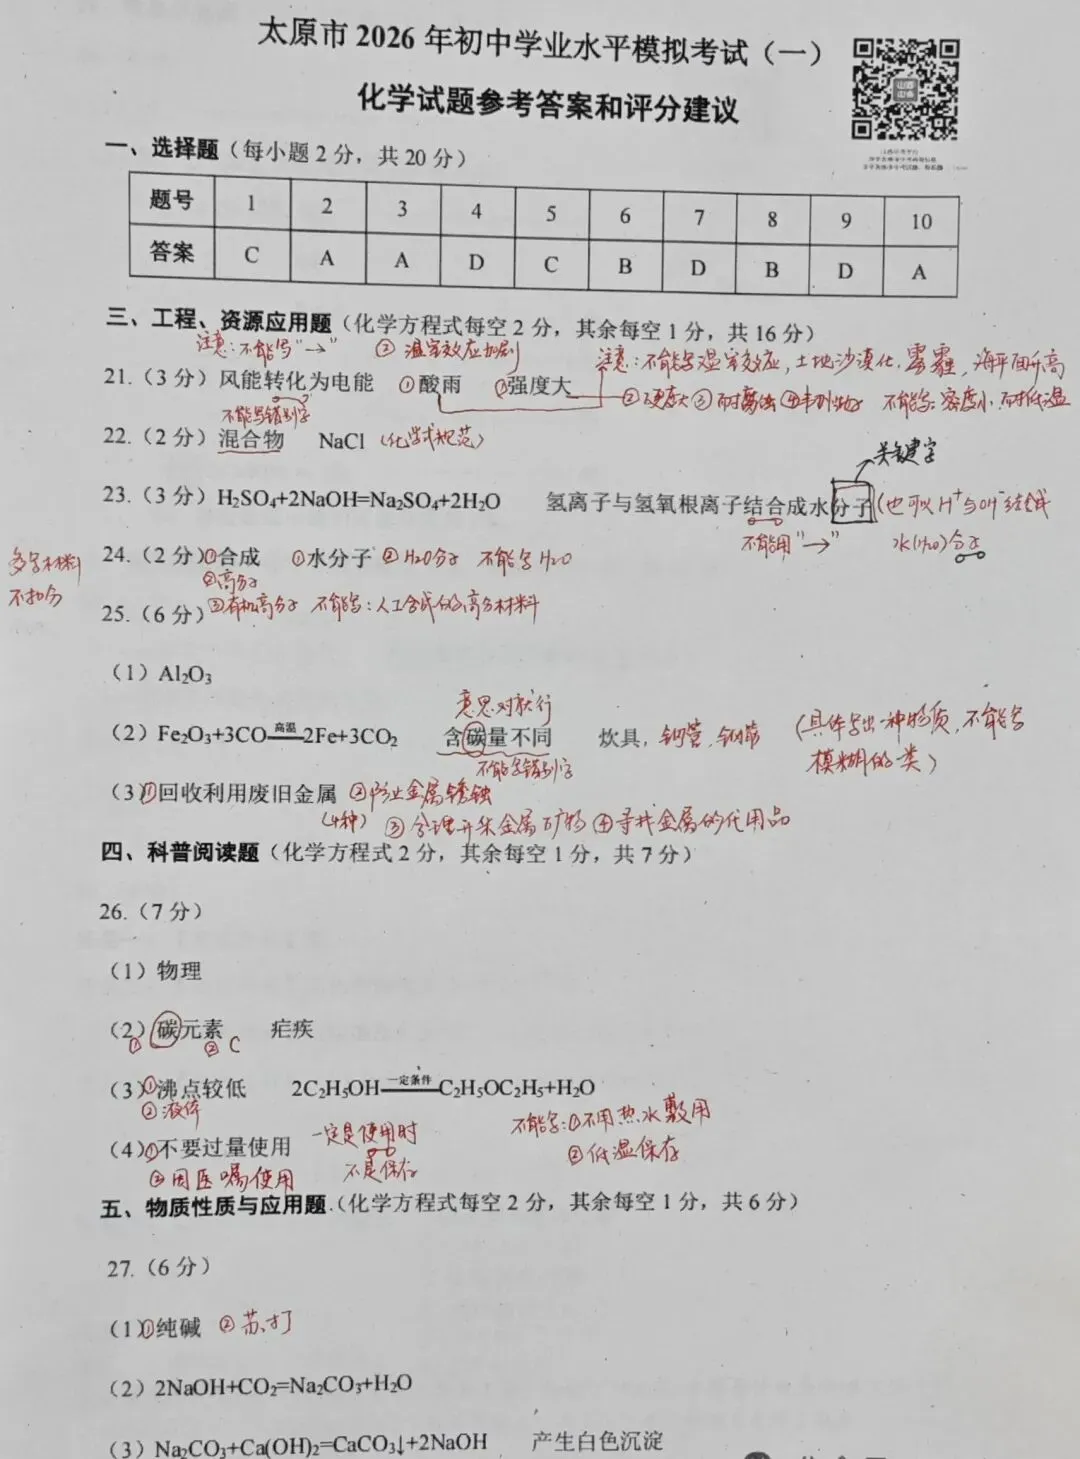 太原市 2026 年初中学业水平模拟考试（一）
化学试题参考答案和评分建议
一、选择题（每小题 2 分，共 20 分）
题号 1 2 3 4 5 6 7 8 9 10
答案 C A A D C B D B D A
三、工程、资源应用题（化学方程式每空 2 分，其余每空 1 分，共 16 分）
注意：不能写“→” ② 温室效应加剧 注意：不能写温室效应，土地沙漠化，雾霾，海平面升高
21.（3 分）风能转化为电能 ①酸雨 ①强度大 ②硬度大 ③耐腐蚀 ④耐 不能写：密度小，耐低温
不能写错别字
22.（2 分）混合物 NaCl（化学式规范）
关键字
23.（3 分）H₂SO₄+2NaOH=Na₂SO₄+2H₂O 氢离子与氢氧根离子结合成水分子（也可以 H⁺与OH⁻结合成
不能用“→” 水(H₂O)分子
多写材料
不扣分
24.（2 分）①合成 ①水分子 ②H₂O分子 不能写 H₂O
②高分子
25.（6 分）③有机高分子 不能写：人工合成的高分材料
（1）Al₂O₃
意思对就行
（2）Fe₂O₃+3CO高温2Fe+3CO₂ 含碳量不同 炊具，钢管，钢筋（具体写出一种物质，不能写
不能写错别字 模糊的类）
（3）①回收利用废旧金属 ②防止金属锈蚀
（4种） ③合理开采金属矿物 ④寻找金属的代用品
四、科普阅读题（化学方程式 2 分，其余每空 1 分，共 7 分）
26.（7 分）
（1）物理
（2）①碳元素 疟疾
② C
（3）①沸点较低 2C₂H₅OH一定条件C₂H₅OC₂H₅+H₂O
②液体 不能写：①不用热水敷用
（4）①不要过量使用 一定是使用时 ②低温保存
②因医嘱使用 不是保存
五、物质性质与应用题.（化学方程式每空 2 分，其余每空 1 分，共 6 分）
27.（6 分）
（1）①纯碱 ②苏打
（2）2NaOH+CO₂=Na₂CO₃+H₂O
（3）Na₂CO₃+Ca(OH)₂=CaCO₃↓+2NaOH 产生白色沉淀